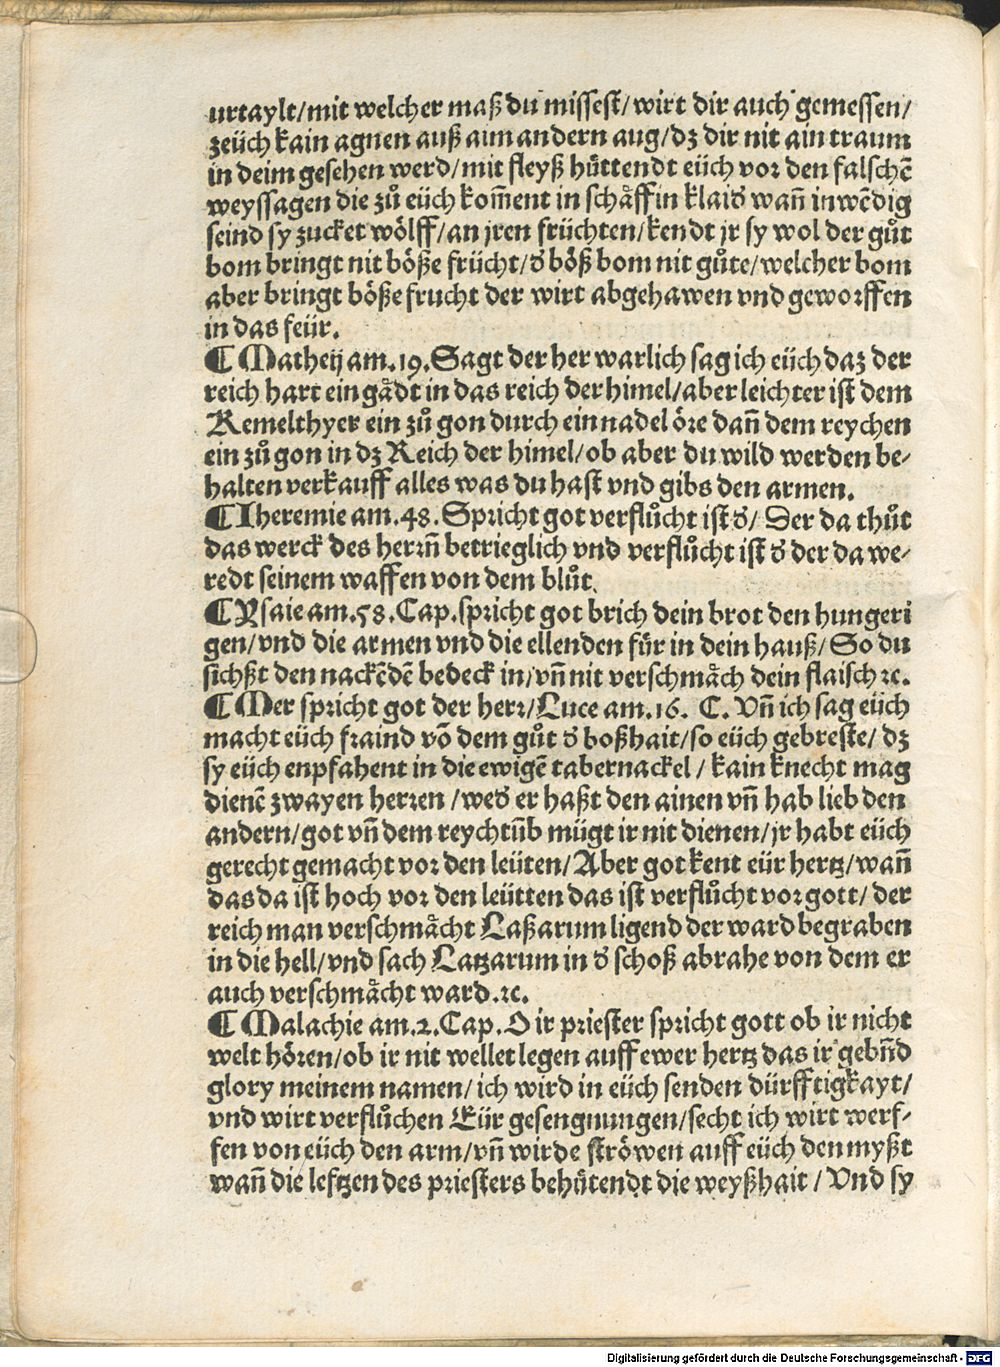 urtaylt/mit welcher maß du missest/wirt dir auch gemessen/
zeüch kain agnen auß aim andern aug/dz dir nit ain traum
in deim gesehen werd/mit fleyß hüttendt eüch vor den falschē
weyssagen die zů eüch kom̄ent in schäffin klaids wan̄ inwēdig
seind sy zucket wölff/an jren früchten/kendt jr sy wol der gůt
bom bringt nit böße frücht/d böß bom nit gůte/welcher bom
aber bringt böße frucht der wirt abgehawen vnd geworffen
in das feür.
¶ Matheij am.19.Sagt der her warlich sag ich eüch daz der
reich hart ein gådt in das reich der himel/aber leichter ist dem
Kemelthyer ein zů gon durch ein nadel öre dan̄ dem reychen
ein zů gon in dz Reich der himel/ob aber du wild werden be-
halten verkauff alles was du hast vnd gibs den armen.
¶ Iheremie am.48.Spricht got verflůcht ist d/ Der da thůt
das werck des herrn̄ betrieglich vnd verflůcht ist d der da we-
redt seinem waffen von dem blůt.
¶ Ysaie am.58.Cap.spricht got brich dein brot den hungeri
gen/vnd die armen vnd die ellenden für in dein hauß/So du
sichßt den nackēdē bedeck in/vn̄ nit verschmäch dein flaisch ꝛc.
¶ Mer spricht got der herr/Luce am.16. C. Vn̄ ich sag eüch
macht eüch fraind vō dem gůt d boßhait/so eüch gebreste/dz
sy eüch enpfahent in die ewigē tabernackel/kain knecht mag
dienē zwayen herren/weds er haßt den ainen vn̄ hab lieb den
andern/got vn̄ dem reychtūb mügt ir nit dienen/jr habt eüch
gerecht gemacht vor den leüten/Aber got kent eür hertz/wan̄
das da ist hoch vor den leütten das ist verflůcht vor gott/der
reich man verschmächt Laßarum ligend der ward begraben
in die hell/vnd sach Latzarum in d schoß abrahe von dem er
auch verschmächt ward.ꝛc.
¶ Malachie am.2.Cap.O ir priester spricht gott ob ir nicht
welt hören/ob ir nit wellet legen auff ewer hertz das ir gebn̄d
glory meinem namen/ich wird in eüch senden dürfftigkayt/
vnd wirt verflůchen Eür gesengnungen/secht ich wirt werf-
fen von eüch den arm/vn̄ wirde ströwen auff eüch den myßt
wan̄ die lefftzen des priesters behütendt die weyßhait/Vnd sy
Digitalisierung gefördert durch die Deutsche Forschungsgemeinschaft - DFG